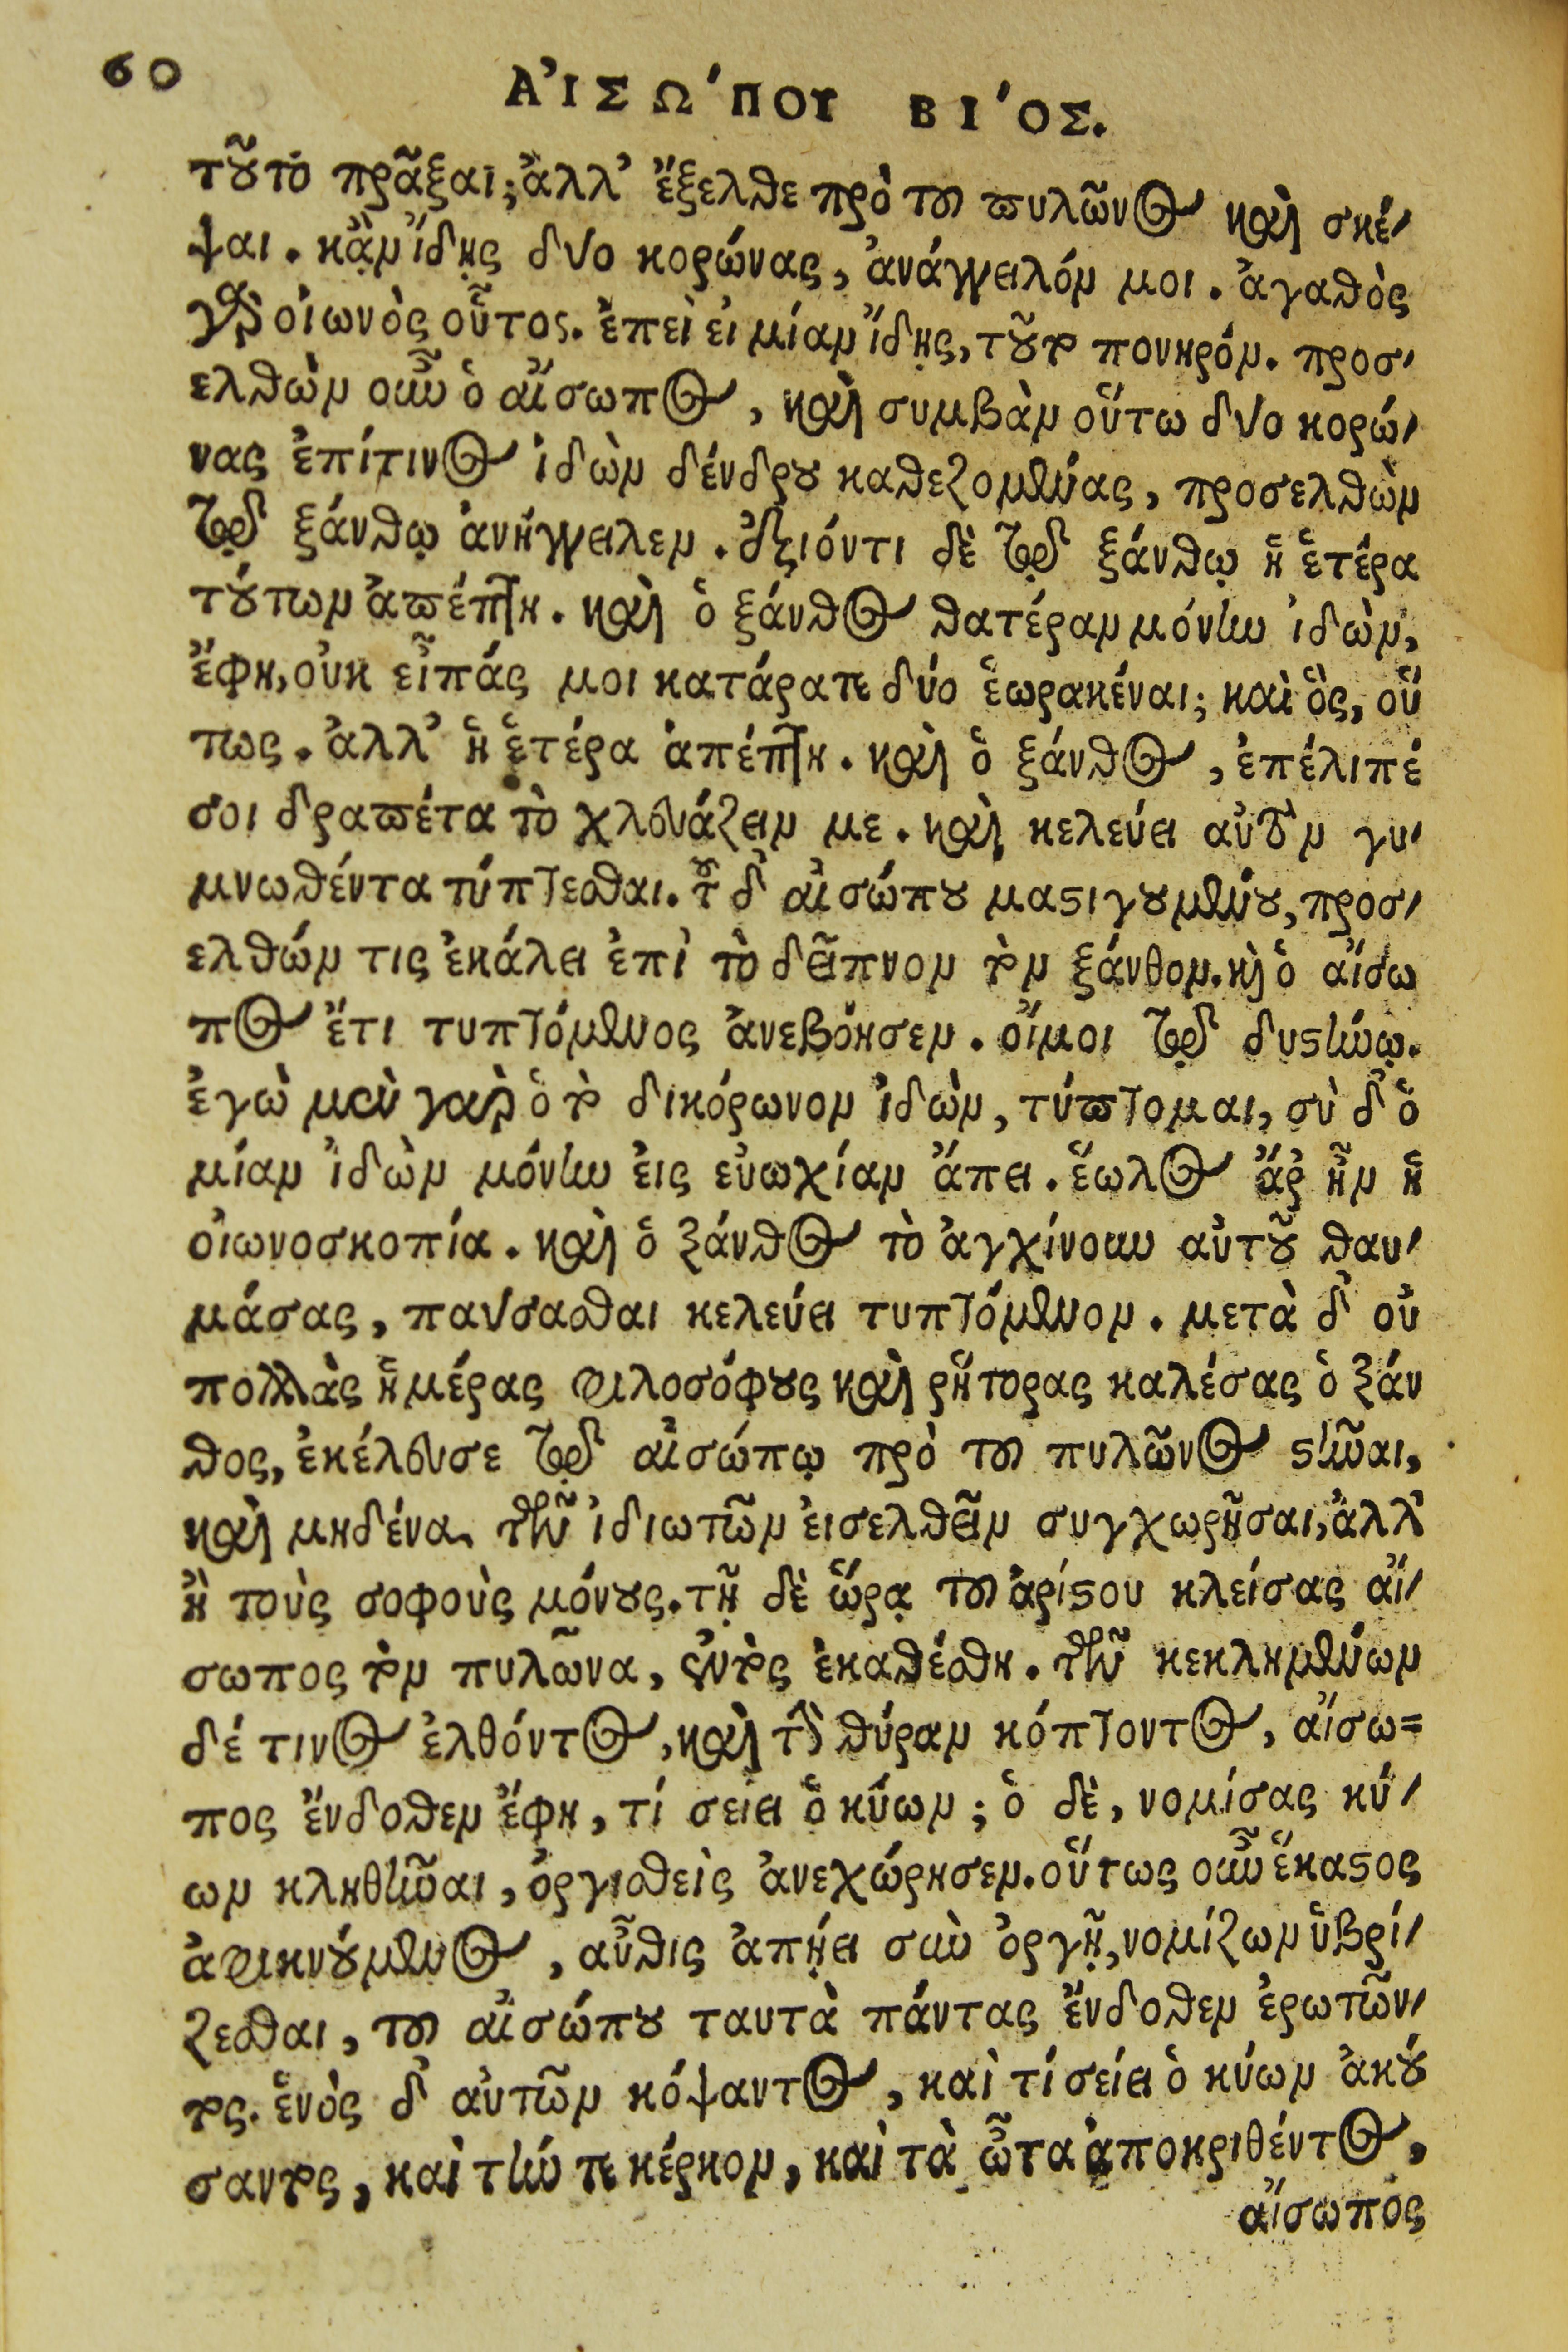 60
ΑἸΣΩ´ΠΟΥ ΒΙ´ΟΣ.
τοῦτο πρᾶξαι; ἀλλ' ἔξελθε πρὸ τοῦ πυλῶνος καὶ σκέ-
ψαι. κᾂν ἴδῃς δύο κορώνας, ἀνάγγειλόν μοι. ἀγαθὸς
γὰρ οἰωνὸς οὗτος. ἐπεὶ εἰ μίαν ἴδῃς, τοῦτο πονηρόν. προσ-
ελθὼν οὖν ὁ αἴσωπος, καὶ συμβὰν οὕτω δύο κορώ-
νας ἐπίτινος ἰδὼν δένδρου καθεζομένας, προσελθὼν
τῷ ξάνθῳ ἀνήγγειλεν. ἐξιόντι δὲ τῷ ξάνθῳ ἡ ἑτέρα
τούτων ἀπέπτη. καὶ ὁ ξάνθος θατέραν μόνην ἰδὼν,
ἔφη, οὐκ εἶπάς μοι κατάρατε δύο ἑωρακέναι; καὶ ὃς, οὕ
τως. ἀλλ' ἡ ἑτέρα ἀπέπτη. καὶ ὁ ξάνθος, ἐπέλιπέ
σοι δραπέτα τὸ χλευάζειν με. καὶ κελεύει αὐτὸν γυ-
μνωθέντα τύπτεσθαι. τοῦ δ' αἰσώπου μαστιγουμένου, προσ-
ελθών τις ἐκάλει ἐπὶ τὸ δεῖπνον τὸν ξάνθον. καὶ ὁ αἴσω
πος ἔτι τυπτόμενος ἀνεβόησεν. οἴμοι τῷ δυστήνῳ.
ἐγὼ μὲν γὰρ ὁ τὸ δικόρωνον ἰδὼν, τύπτομαι, σὺ δ' ὁ
μίαν ἰδὼν μόνην εἰς εὐωχίαν ἄπει. ἕωλος ἄρ' ἦν ἡ
οἰωνοσκοπία. καὶ ὁ ξάνθος τὸ ἀγχίνουν αὐτοῦ θαυ-
μάσας, παύσασθαι κελεύει τυπτόμενον. μετὰ δ' οὐ
πολλὰς ἡμέρας φιλοσόφους καὶ ῥήτορας καλέσας ὁ ξάν
θος, ἐκέλευσε τῷ αἰσώπῳ πρὸ τοῦ πυλῶνος στῆναι,
καὶ μηδένα τῶν ἰδιωτῶν εἰσελθεῖν συγχωρῆσαι, ἀλλ'
ἢ τοὺς σοφοὺς μόνους. τῇ δὲ ὥρᾳ τοῦ ἀρίστου κλείσας αἴ-
σωπος τὸν πυλῶνα, ἐντὸς ἐκαθέσθη. τῶν κεκλημένων
δέ τινος ἐλθόντος, καὶ τὴν θύραν κόπτοντος, αἴσω=
πος ἔνδοθεν ἔφη, τί σείει ὁ κύων; ὁ δὲ, νομίσας κύ-
ων κληθῆναι, ὀργισθεὶς ἀνεχώρησεν. οὕτως οὖν ἕκαστος
ἀφικνούμενος, αὖθις ἀπῄει σὺν ὀργῇ, νομίζων ὑβρί-
ζεσθαι, τοῦ αἰσώπου ταυτὰ πάντας ἔνδοθεν ἐρωτῶν-
τος. ἑνὸς δ' αὐτῶν κόψαντος, καὶ τί σείει ὁ κύων ἀκού
σαντος, καὶ τήν τε κέρκον, καὶ τὰ ὦτα ἀποκριθέντος,
αἴσωπος